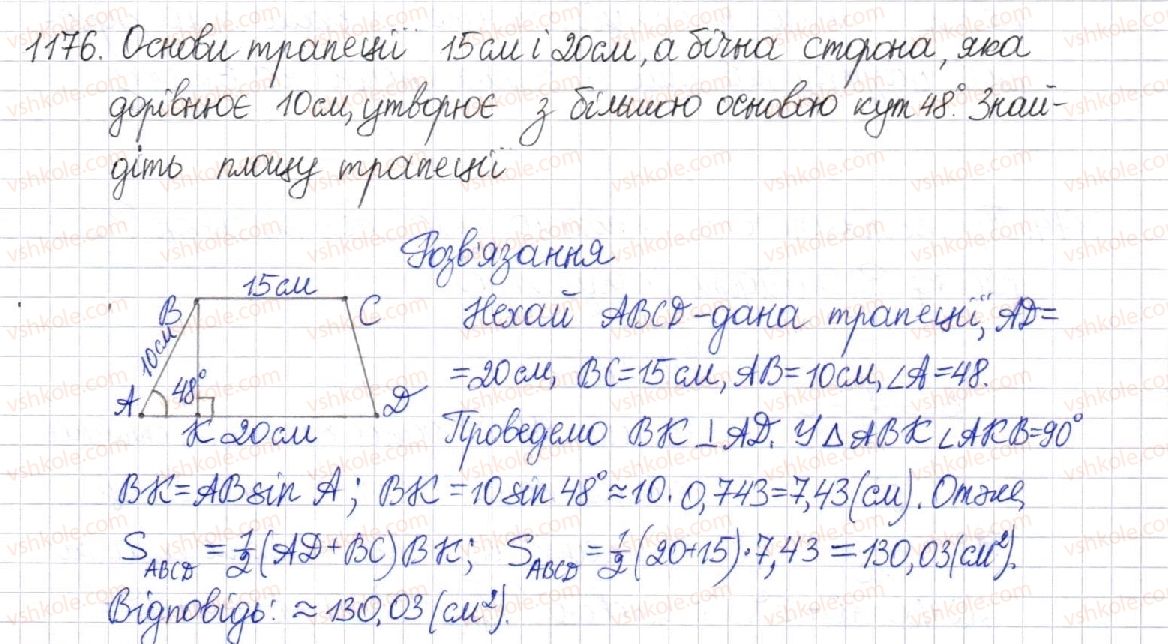 1176. Основи трапеції 15см і 20см, а бічна сторона, яка
дорівнює 10см, утворює з більшою основою кут 48°. Знай-
діть площу трапеції
Розв'язання
15см
B C
10см
48°
A D
K 20см
Нехай ABCD - дана трапеції, AD=
=20см, BC=15см, AB=10см, ∠A=48.
Проведемо BK⊥AD. У △ABK ∠AKB=90°
BK=AB sin A; BK=10 sin 48°≈10·0,743=7,43(см). Отже,
S_ABCD = 1/2 (AD+BC) BK; S_ABCD = 1/2 (20+15)·7,43=130,03(см²).
Відповідь: ≈130,03(см²).
vshkole.com